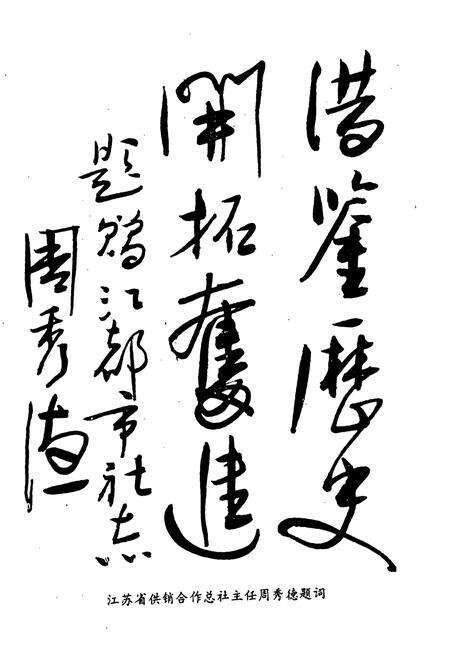 借鉴歷史
開拓奮進
题赠江都市社志
周秀德
江苏省供销合作总社主任周秀德题词